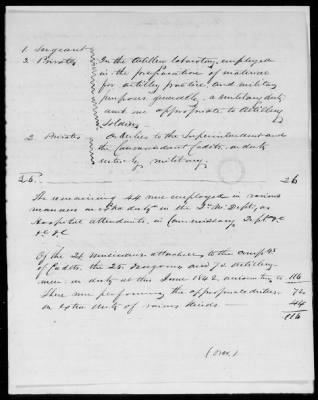 1. Sergeant
3. Privates
In the Artillery laboratory, employed
in the preparation of material
for artillery practice, and military
purposes generally, a military duty
and one appropriate to Artillery
Soldiers.
2. Privates
Orderlies to the Superintendent and
the Commandant Cadets, a duty
entirely military.
26
The remaining 44 are employed in various
manners on extra duty in the Qr. Mr. Dept., as
Hospital attendants, in Commissary Dept &c
&c &c
Of the musicians attached to the corps of
Cadets, the 25 and 72 Artillery
men on duty at this June 1842, amounting to 116
there are performing the appropriate duties 72
on extra duty of various kinds. 44
116
(Over.)